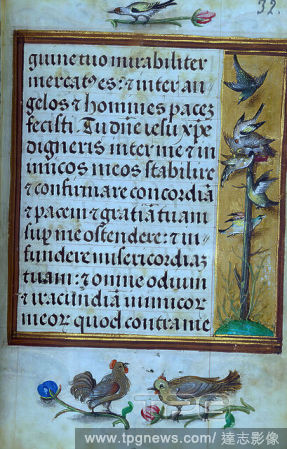 32.
guine tuo mirabiliter
mercat⁹ es: ⁊ inter an
gelos ⁊ hommes pacez
fecisti. Tu dñe iesu xp̄e
digneris inter me ⁊ in
imicos meos stabilire
⁊ confirmare concordiā
⁊ pacem ⁊ gratiā tuam
sup̱ me ostendere: ⁊ in/
fundere misericordiaz
tuam: ⁊ omne odium
⁊ iracundiam inimicor
meor quod contra me
www.tpgnews.com/ 達志影像